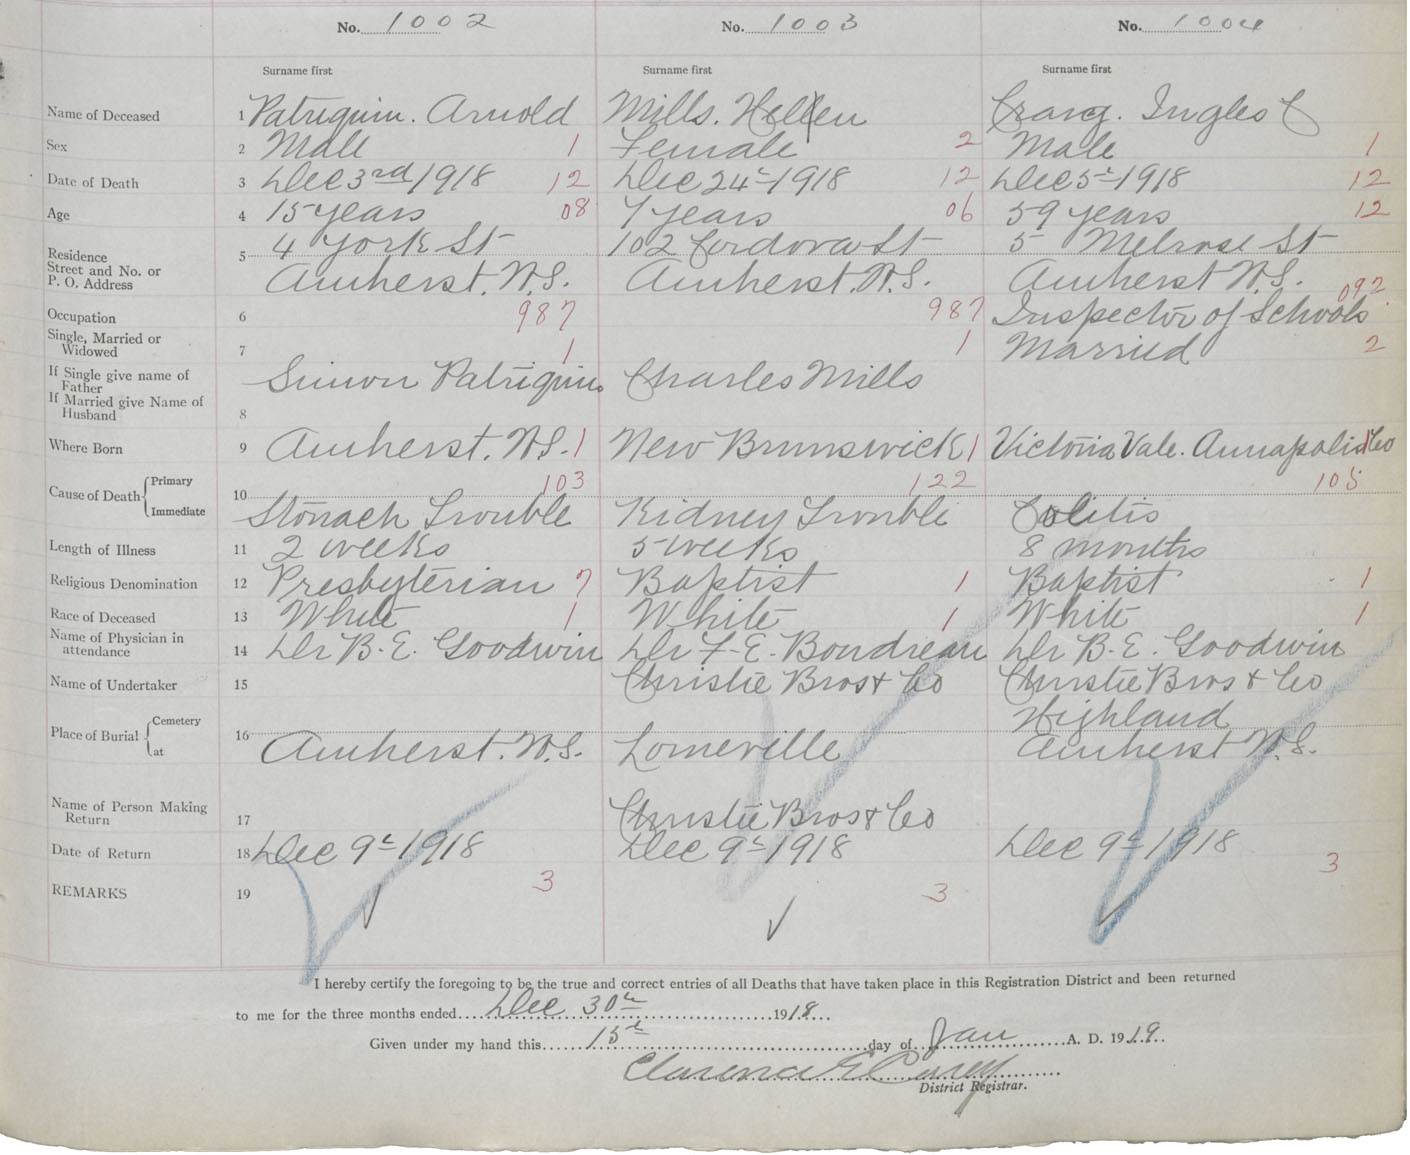 No. 1002 No. 1003 No. 1004
Surname first Surname first Surname first
Name of Deceased 1 Patriquin. Arnold Mills. Hellen Craig. Ingles C
Sex 2 Male 1 Female 2 Male 1
Date of Death 3 Dec 3rd 1918 12 Dec 24th 1918 12 Dec 5th 1918 12
Age 4 15 years 08 7 years 06 59 years 12
Residence Street and No. or P. O. Address 5 4 York St 102 Cordova St 5 Melrose St
Amherst. N.S. Amherst. N.S. Amherst N.S. 092
Occupation 6 987 987 Inspector of Schools
Single, Married or Widowed 7 1 1 Married 2
If Single give name of Father Simon Patriquin Charles Mills
If Married give Name of Husband 8
Where Born 9 Amherst. N.S. 1 New Brunswick 1 Victoria Vale. Annapolis Co 1
Cause of Death Primary 10 103 122 105
Immediate Stonach Trouble Kidney Trouble Colitis
Length of Illness 11 2 weeks 5 weeks 8 months
Religious Denomination 12 Presbyterian 7 Baptist 1 Baptist 1
Race of Deceased 13 White 1 White 1 White 1
Name of Physician in attendance 14 Dr B. E. Goodwin Dr F. E. Boudreau Dr B. E. Goodwin
Name of Undertaker 15 Christie Bros & Co Christie Bros & Co
Place of Burial Cemetery 16 Highland
at Amherst. N.S. Lorneville Amherst N.S.
Name of Person Making Return 17 Christie Bros & Co
Date of Return 18 Dec 9th 1918 Dec 9th 1918 Dec 9th 1918
REMARKS 19 3 3 3
I hereby certify the foregoing to be the true and correct entries of all Deaths that have taken place in this Registration District and been returned
to me for the three months ended Dec 30th 1918
Given under my hand this 15th day of Jan A. D. 1919.
Clarence E
District Registrar.